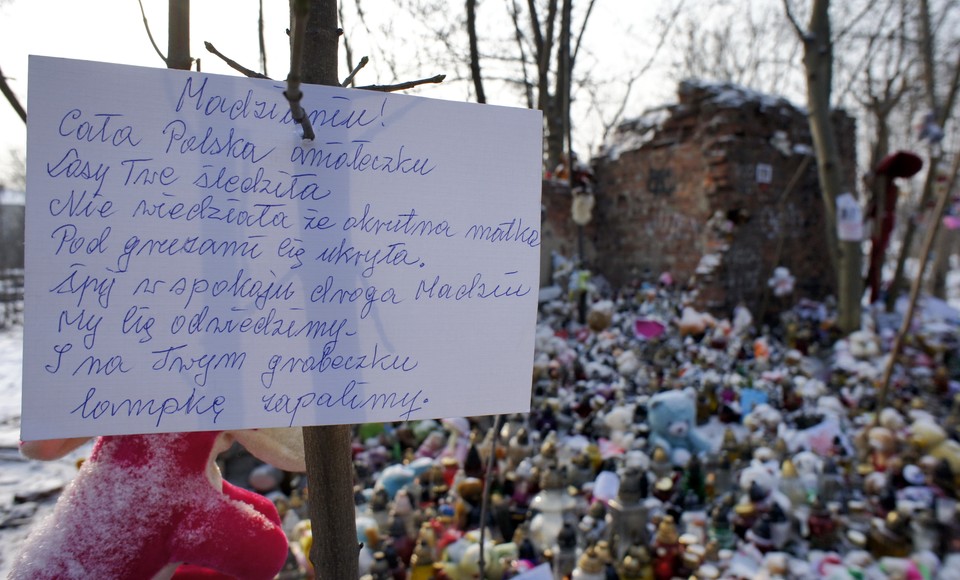 Madziuniu!
Cała Polska aniołeczku
Losy Twe śledziła
Nie wiedziała że okrutna matka
Pod gruzami Cię ukryła.
Śpij w spokoju droga Madziu
My Cię odwiedzimy
I na Twym grobeczku
lampkę zapalimy.